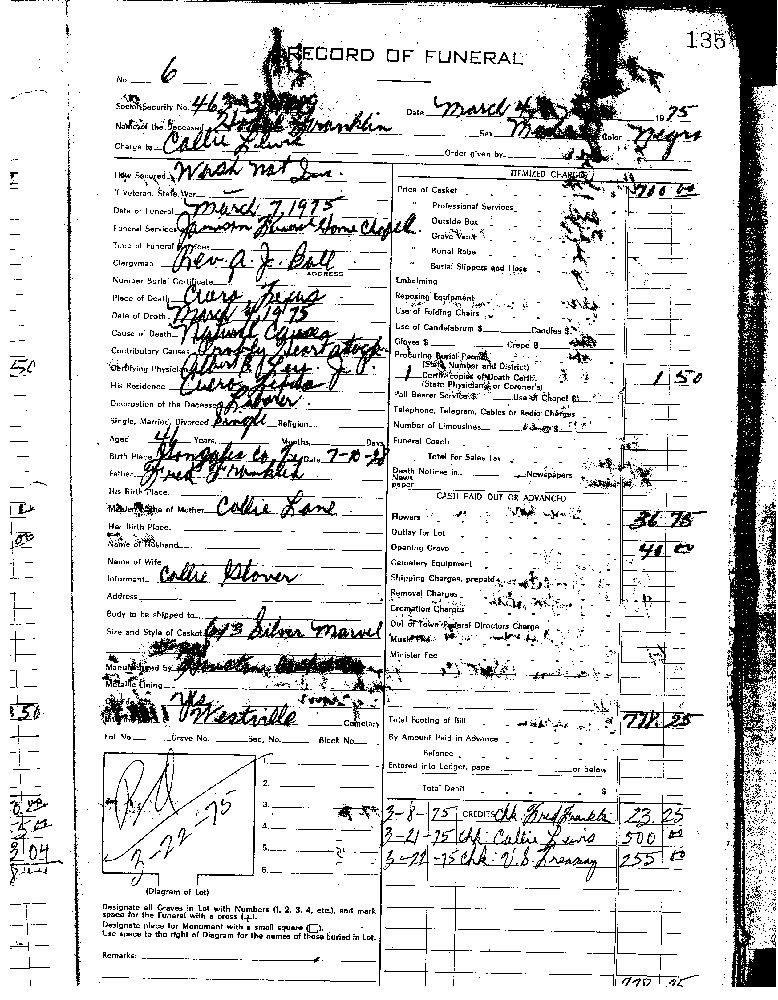 135
RECORD OF FUNERAL
No. 6
Social Security No. 463-3
Date March 4, 1975
Name of the Deceased Franklin
Sex Color Negro
Charge to Callie Lewis
Order given by
How Secured
ITEMIZED CHARGES
If Veteran, State War
Price of Casket 700 00
Date of Funeral March 7, 1975
Professional Services
Funeral Services Jamison Funeral Home Chapel
Outside Box
Grave Vault
Time of Funeral
Burial Robe
Clergyman Rev. A. J. Ball
Burial Slippers and Hose
ADDRESS
Number Burial Certificate
Embalming
Place of Death Cuero, Texas
Reposing Equipment
Date of Death March 4, 1975
Use of Folding Chairs
Cause of Death Natural Causes
Use of Candelabrum $ Candles $
Contributory Causes
Gloves $ Crepe $
Procuring Burial Permit
(State Number and District)
Certifying Physician Albert Jr.
1 Certif. copies of Death Certif. 1 50
(State Physician's or Coroner's)
His Residence Cuero, Texas
Pall Bearer Service $ Use of Chapel $
Occupation of the Deceased Laborer
Telephone, Telegram, Cables or Radio Charges
Single, Married, Divorced Single Religion
Number of Limousines
Aged 46 Years Months Days
Funeral Coach
Birth Place Gonzales Co. Tex Date 7-10-28
Total For Sales Tax
Father Fred Franklin
Death Notices in Newspapers
News
paper
His Birth Place
CASH PAID OUT OR ADVANCED
Maiden Name of Mother Callie Lane
Flowers 36 75
Her Birth Place
Outlay for Lot
Name of Husband
Opening Grave 40 00
Name of Wife
Cemetery Equipment
Informant Callie Glover
Shipping Charges, prepaid
Address
Removal Charges
Cremation Charges
Body to be shipped to
Out of Town Funeral Directors Charge
Size and Style of Casket 6/3 Silver Marvel
Music
Minister Fee
Manufactured by
Metallic Lining
Westville Cemetery
Total Footing of Bill 778 25
Lot No. Grave No. Sec. No. Block No.
By Amount Paid in Advance
Balance
Entered into Ledger, page or below
Total Debit $
1.
2.
3.
4.
5.
6.
Pd
3-22-75
3-8-75 CREDITS Chk Fred Franklin 23 25
3-21-75 Chk Callie Lewis 500 00
3-22-75 Chk U.S. Treasury 255 00
(Diagram of Lot)
Designate all Graves in Lot with Numbers (1, 2, 3, 4, etc.), and mark
space for the Funeral with a cross (+).
Designate place for Monument with a small square (□).
Use space to the right of Diagram for the names of those buried in Lot.
Remarks:
778 25